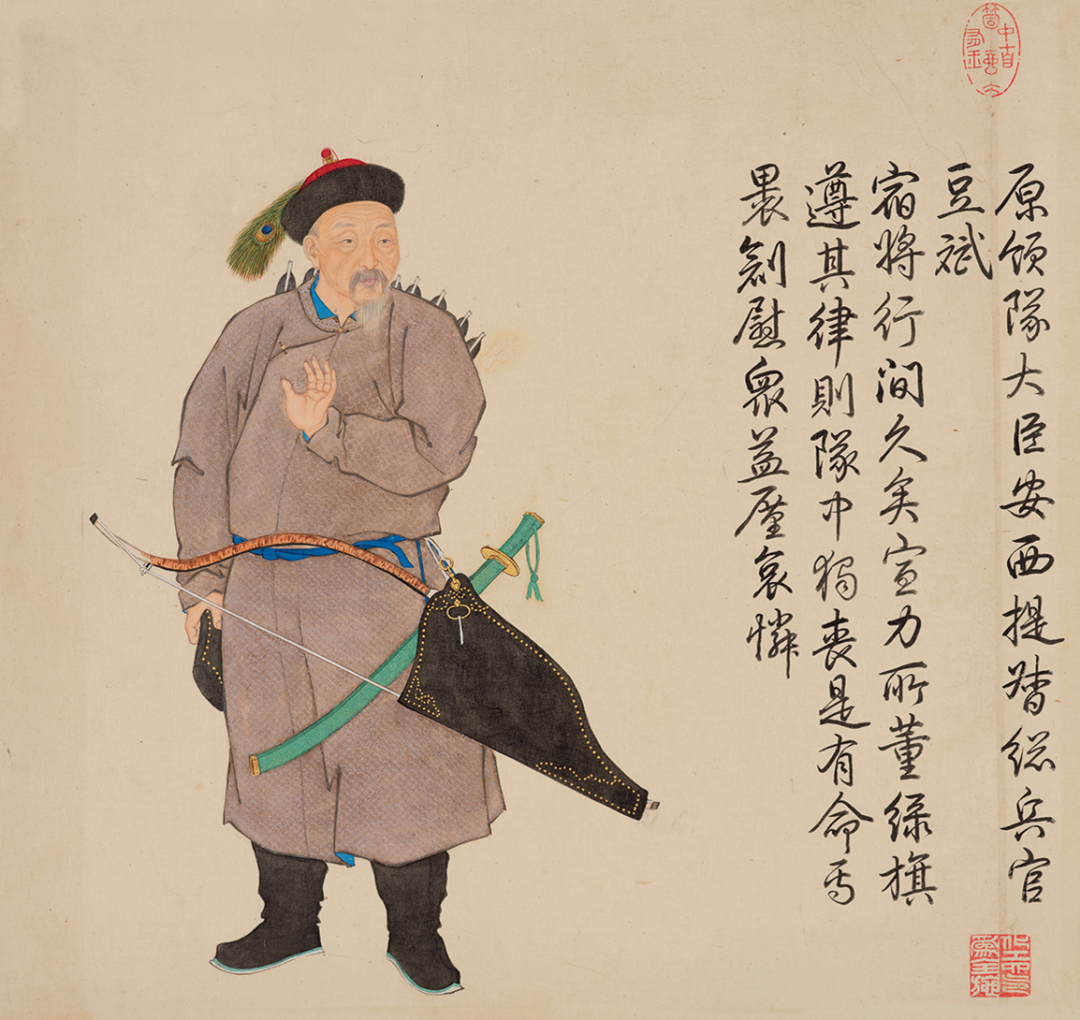 原領隊大臣安西提督總兵官
豆斌
宿將行間久矣宣力所董綠旗
遵其律則隊中獨喪是有命焉
裹創慰衆益厪哀憐